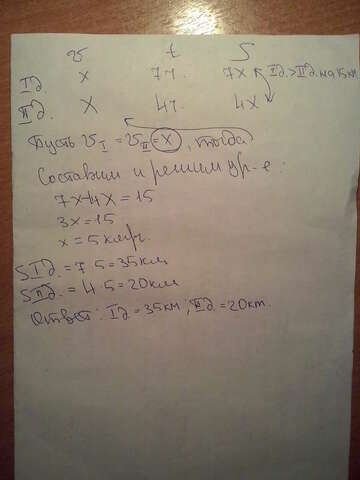 v t S
I д. x 7ч. 7x I д. > II д. на 15 км
II д. x 4ч. 4x
Пусть v I = v II = x, тогда
Составим и решим ур-е:
7x-4x=15
3x=15
x=5 км/ч.
S I д. = 7·5=35км
S II д. = 4·5=20км
Ответ: I д = 35км; II д = 20км.